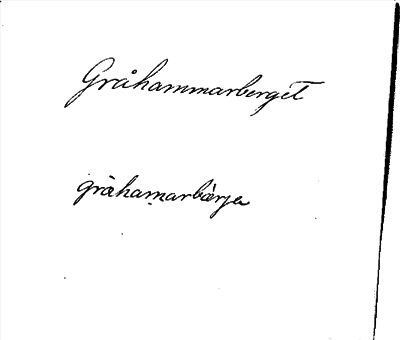 Gråhammarberget
gràhamarbàrja